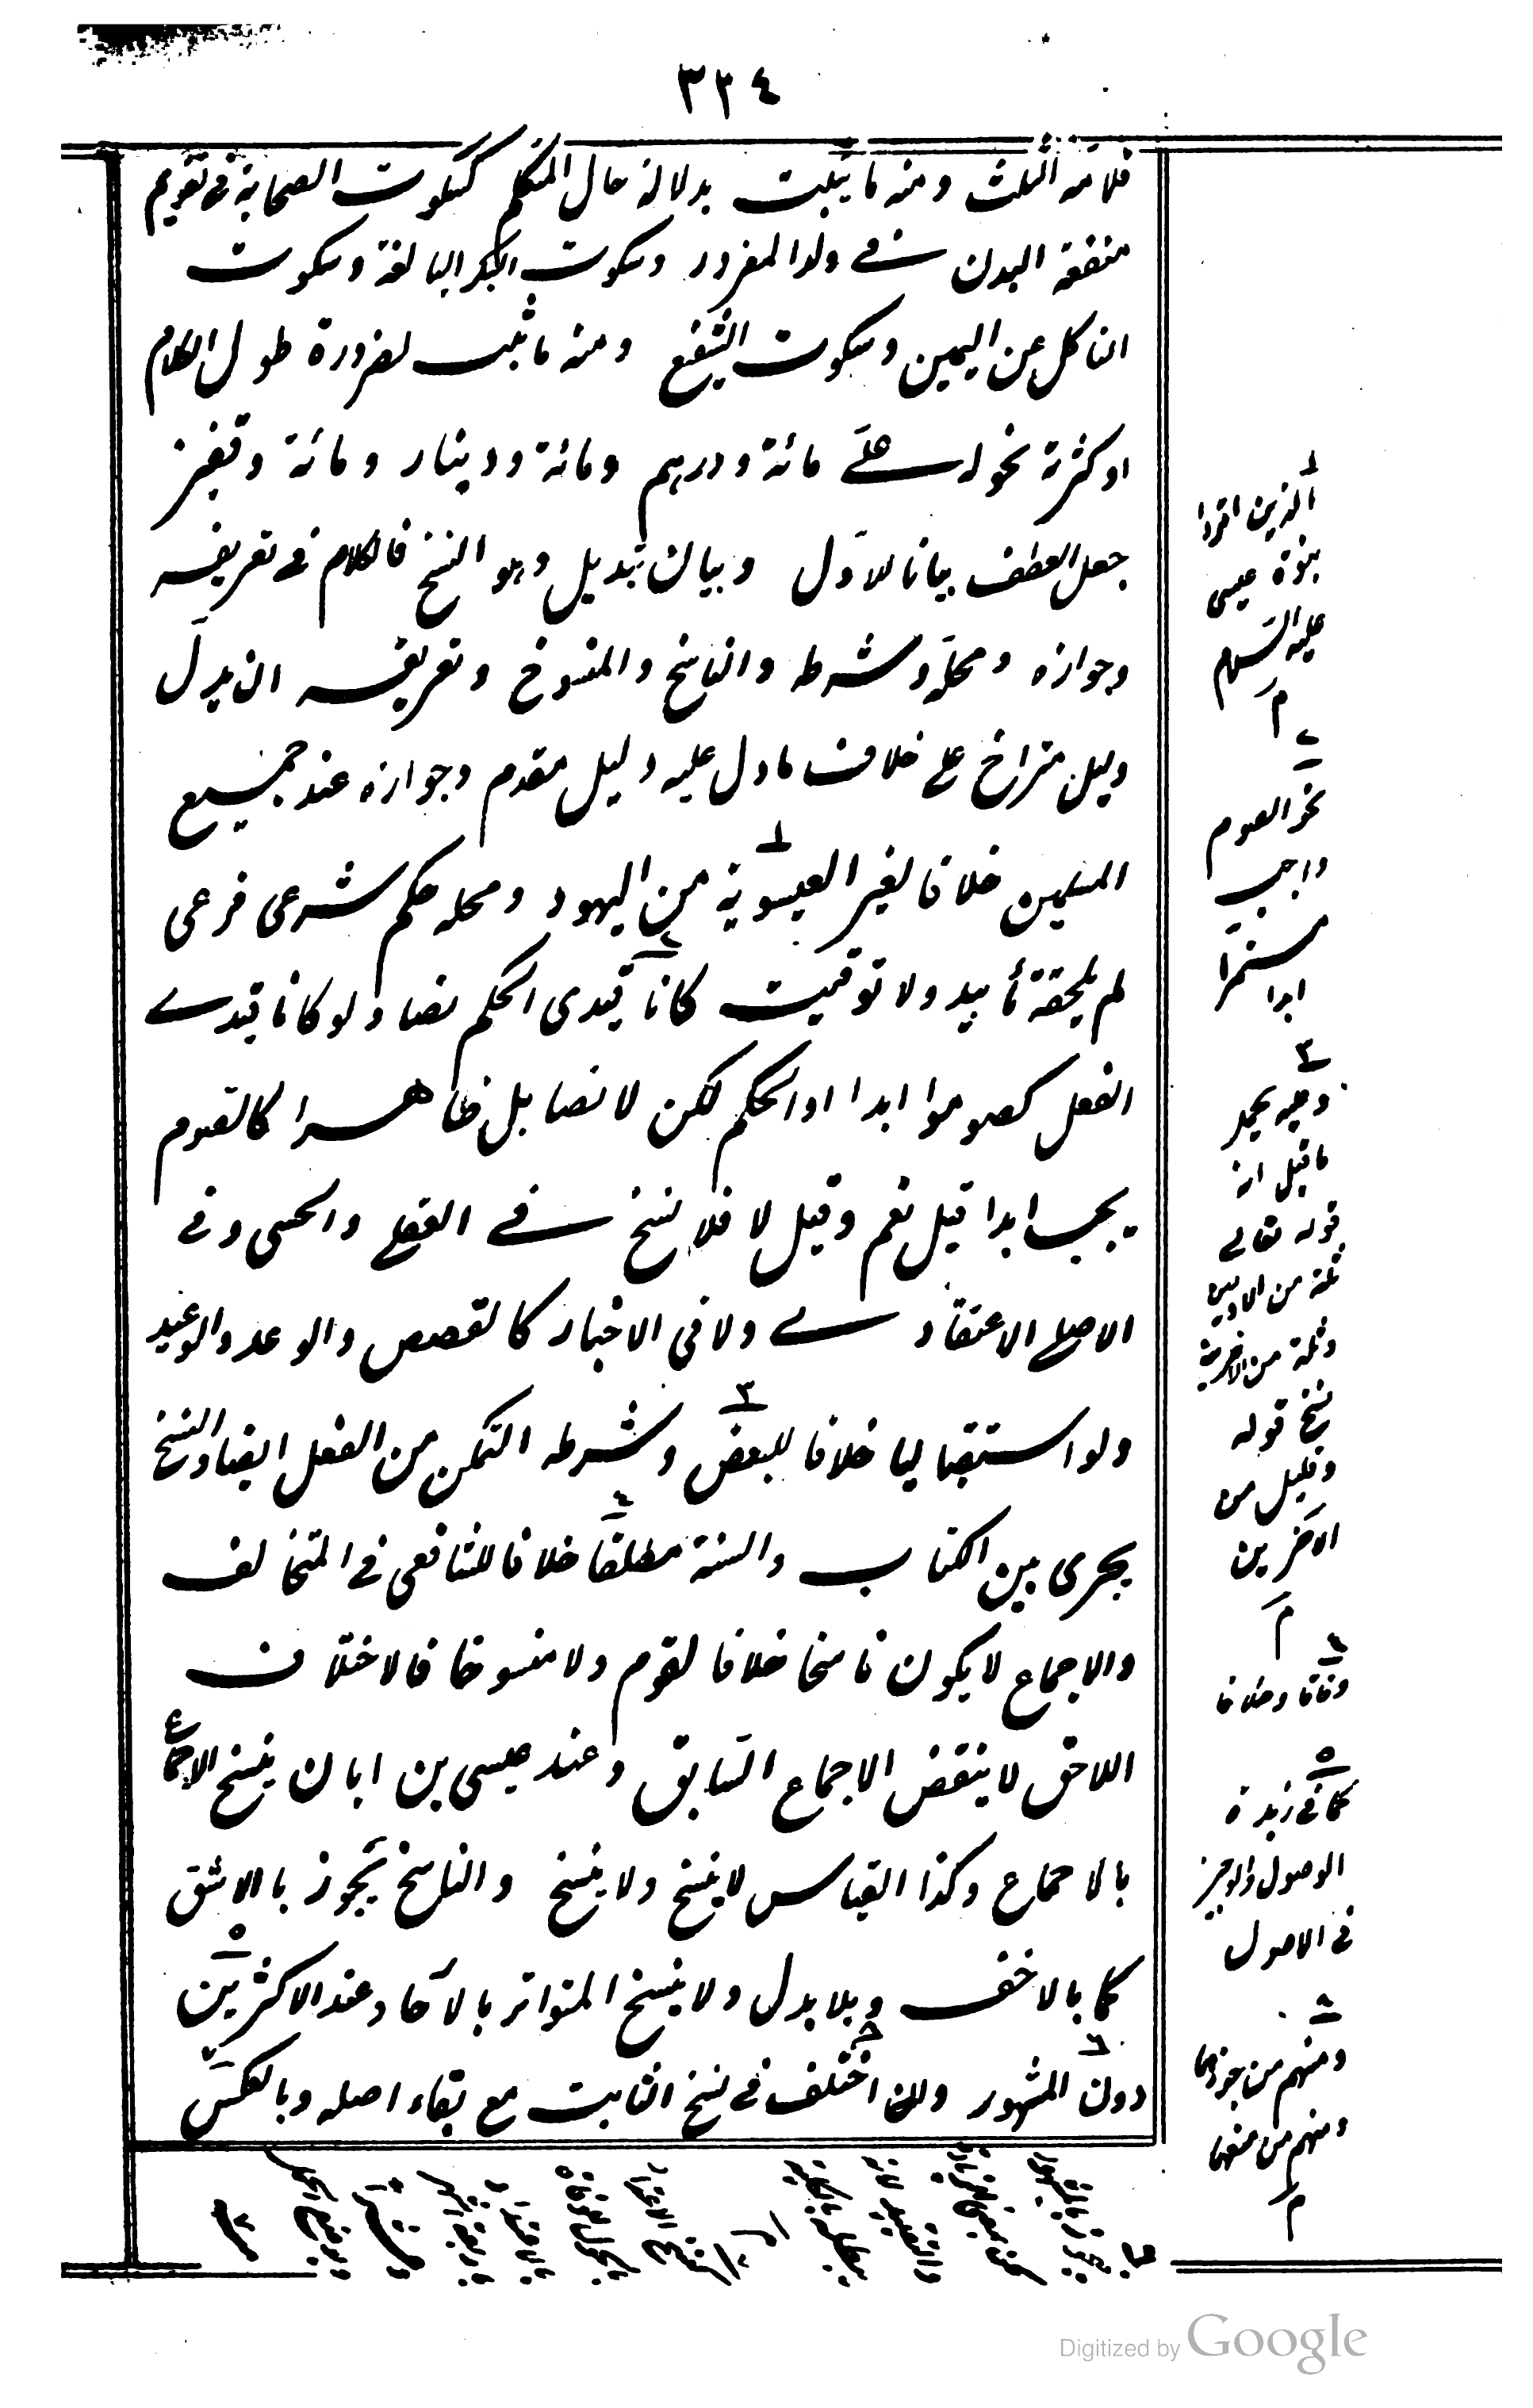 ٣٣٤
فلامه الثلث ومنه ما يثبت بدلالة حال المتكلم كسكوت الصحابة فى تقويم
منفعة البدن فى ولد المغرور وسكوت البكر البالغة وسكوت
الناكل عن اليمين وسكوت الشفيع ومنه ما ثبت لضرورة طول الكلام
او كثرته نحو له على مائة ودرهم ومائة ودينار ومائة وقفيز
جعل العطف بيانا للاول وبيان تبديل وهو النسخ فالكلام فى تعريفه
وجوازه ومحله وشرطه والناسخ والمنسوخ وتعريفه ان يدل
دليل متراخ على خلاف ما دل عليه دليل مقدم وجوازه عند جميع
المسلمين خلافا لغير العيسوية ١ من اليهود ومحله حكم شرعى فرعى
لم يلحقه تأبيد ولا توقيت ٢ كانا قيدى الحكم نصا ولو كانا قيدى
الفعل كصوموا ابدا او الحكم لكن لا نصا بل ظاهرا كالصوم
يجب ابدا قيل نعم وقيل لا فلا نسخ فى العقلى والحسى وفى
الاصلى الاعتقادى ولا فى الاخبار كالقصص والوعد والوعيد
ولو استقباليا خلافا للبعض ٣ وشرطه التمكن من الفعل ايضا والنسخ
يجرى بين الكتاب والسنة مطلقا ٤ خلافا للشافعى فى المتخالف
والاجماع لا يكون ناسخا خلافا لقوم ولا منسوخا فالاختلاف
اللاحق لا ينقض الاجماع السابق وعند عيسى بن ابان ينسخ الاجماع
بالاجماع وكذا القياس لا ينسخ ولا ينسخ والناسخ يجوز بالاشق
كما بالاخف ٥ وبلا بدل ولا ينسخ المتواتر بالآحاد عند الاكثرين
دون ٦ المشهور ولكن اختلف ٨ فى نسخ الثابت مع بقاء اصله وبالعكس
١
الذين اقروا
بنبوة عيسى
عليه السلام
م
٢
نحو الصوم
واجب
مستمرا
ابدا
٣
وعليه يحمل
ما قيل انه
قوله تعالى
ثلة من الاولين
وثلة من الاخرين
نسخ قوله
وقليل من
الاخرين
م
٤
وفاقا وخلافا
٥
كما فى زبدة
الوصول والوجيز
فى الاصول
٨
ومنهم من جوزهما
ومنهم من منعهما
م